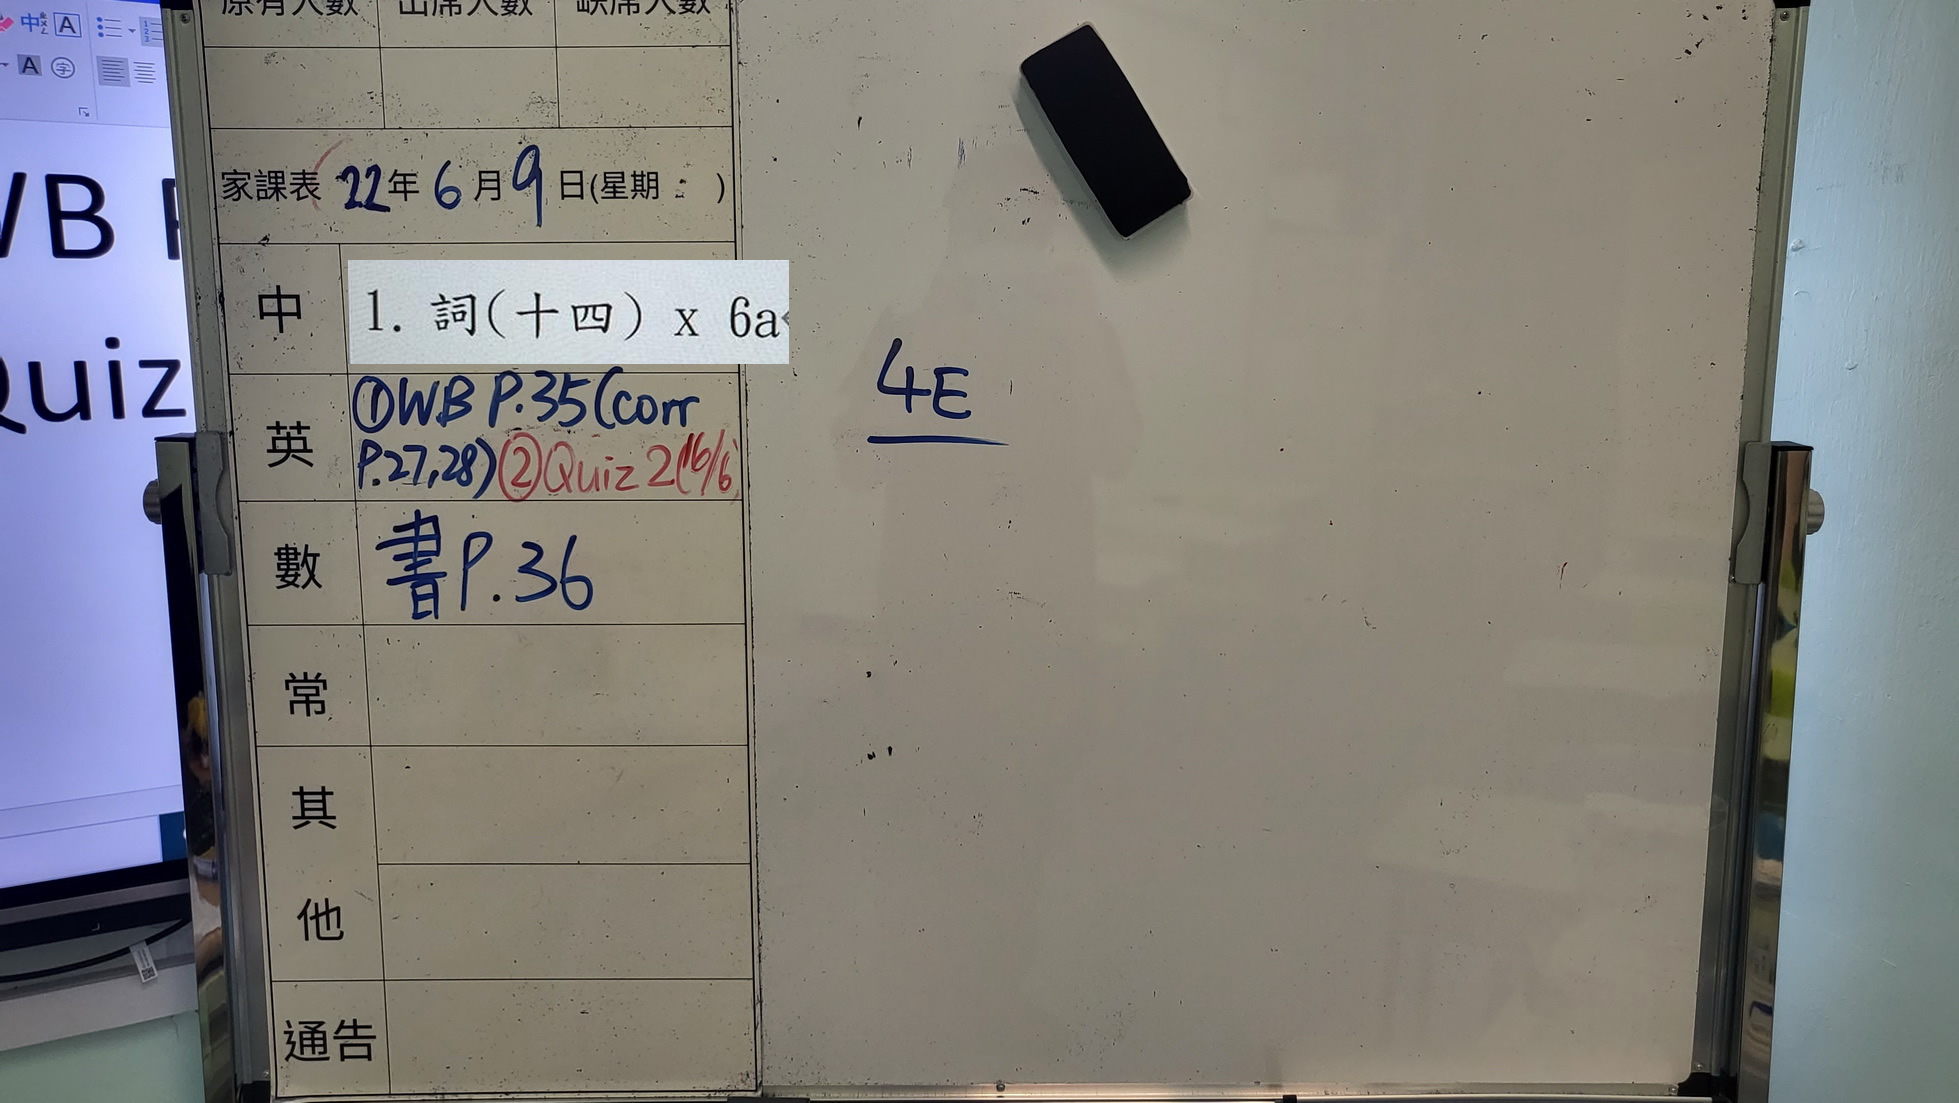 中
A
A
字
WB P
Quiz
原有人數 出席人數 缺席人數
家課表 22年 6月 9日(星期 )
中 1. 詞(十四) x 6a
英 ①WB P.35(corr
P.27,28)②Quiz 2(16/6)
數 書P.36
常
其
他
通告
4E